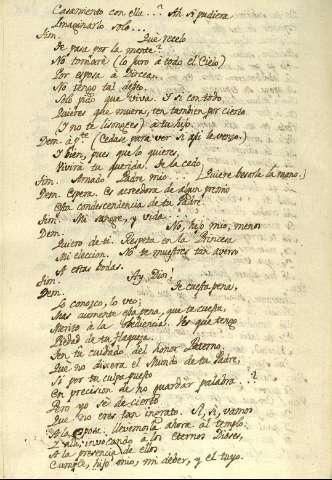 Casamiento con ella...? Ah si pudiera
Imaginarlo solo...
Tim. Qué recelo
Te pasa por la mente?
No tornaré (lo juro á todo el Cielo)
Por esposa á Dircea.
No tengo tal deseo.
Solo pido que viva. Y si con todo
Quieres que muera, ten tambien por cierto
(Y no te lisongees) á tu hijo.
Dem. á pte. (Cedase para ver si asi le venzo.)
Y bien, pues que lo quieres,
Vivirá tu querida. Te la cedo.
Tim. Amado Padre mio... (Quiere besarle la mano.)
Dem. Espera. Es acreedora de algun premio
Esta condescendencia de tu Padre.
Tim. Mi sangre, y vida
Dem. No, hijo mio, menos
Quiero de ti. Respeta en la Princesa
Mi eleccion. No te muestres tan averso
A estas bodas.
Tim. Ay Dios!
Dem. Te cuesta pena,
Lo conozco, lo veo;
Mas aumente esa pena, que te cuesta,
Merito á la obediencia. Yo que tengo
Piedad de tu flaqueza.
Ten tu cuidado del honor Paterno.
Que no dixera el Mundo de tu Padre,
Si por tu culpa puesto
En precision de no guardar palabra...?
Pero yo sé de cierto
Que no eres tan ingrato. Si, si, vamos
A la Esposa. Llevemosla ahora al templo.
Y alli, invocando á los eternos Dioses,
A la presencia de ellos
Cumple, hijo mio, mi deber, y el tuyo.